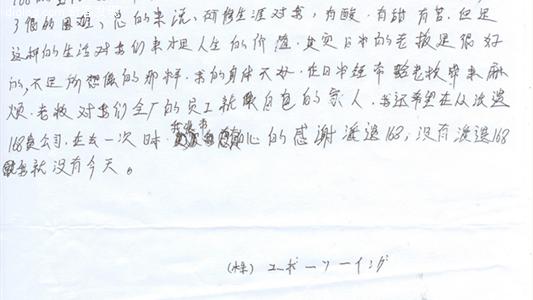 了很的困难，总的来说，研修生涯对我，有酸，有甜 有苦，但是
这样的生活对我们来说是人生的价值，其实日本的老板是很好
的，不是所想像的那样，我的身体不好，在日本经常给老板带来麻
烦，老板对我们全厂的员工就像自己的家人，我还希望在从派遣
168贵公司，在去一次日本，我衷心的感谢派遣168，没有派遣168
我就没有今天。
（株） エポーソーイング